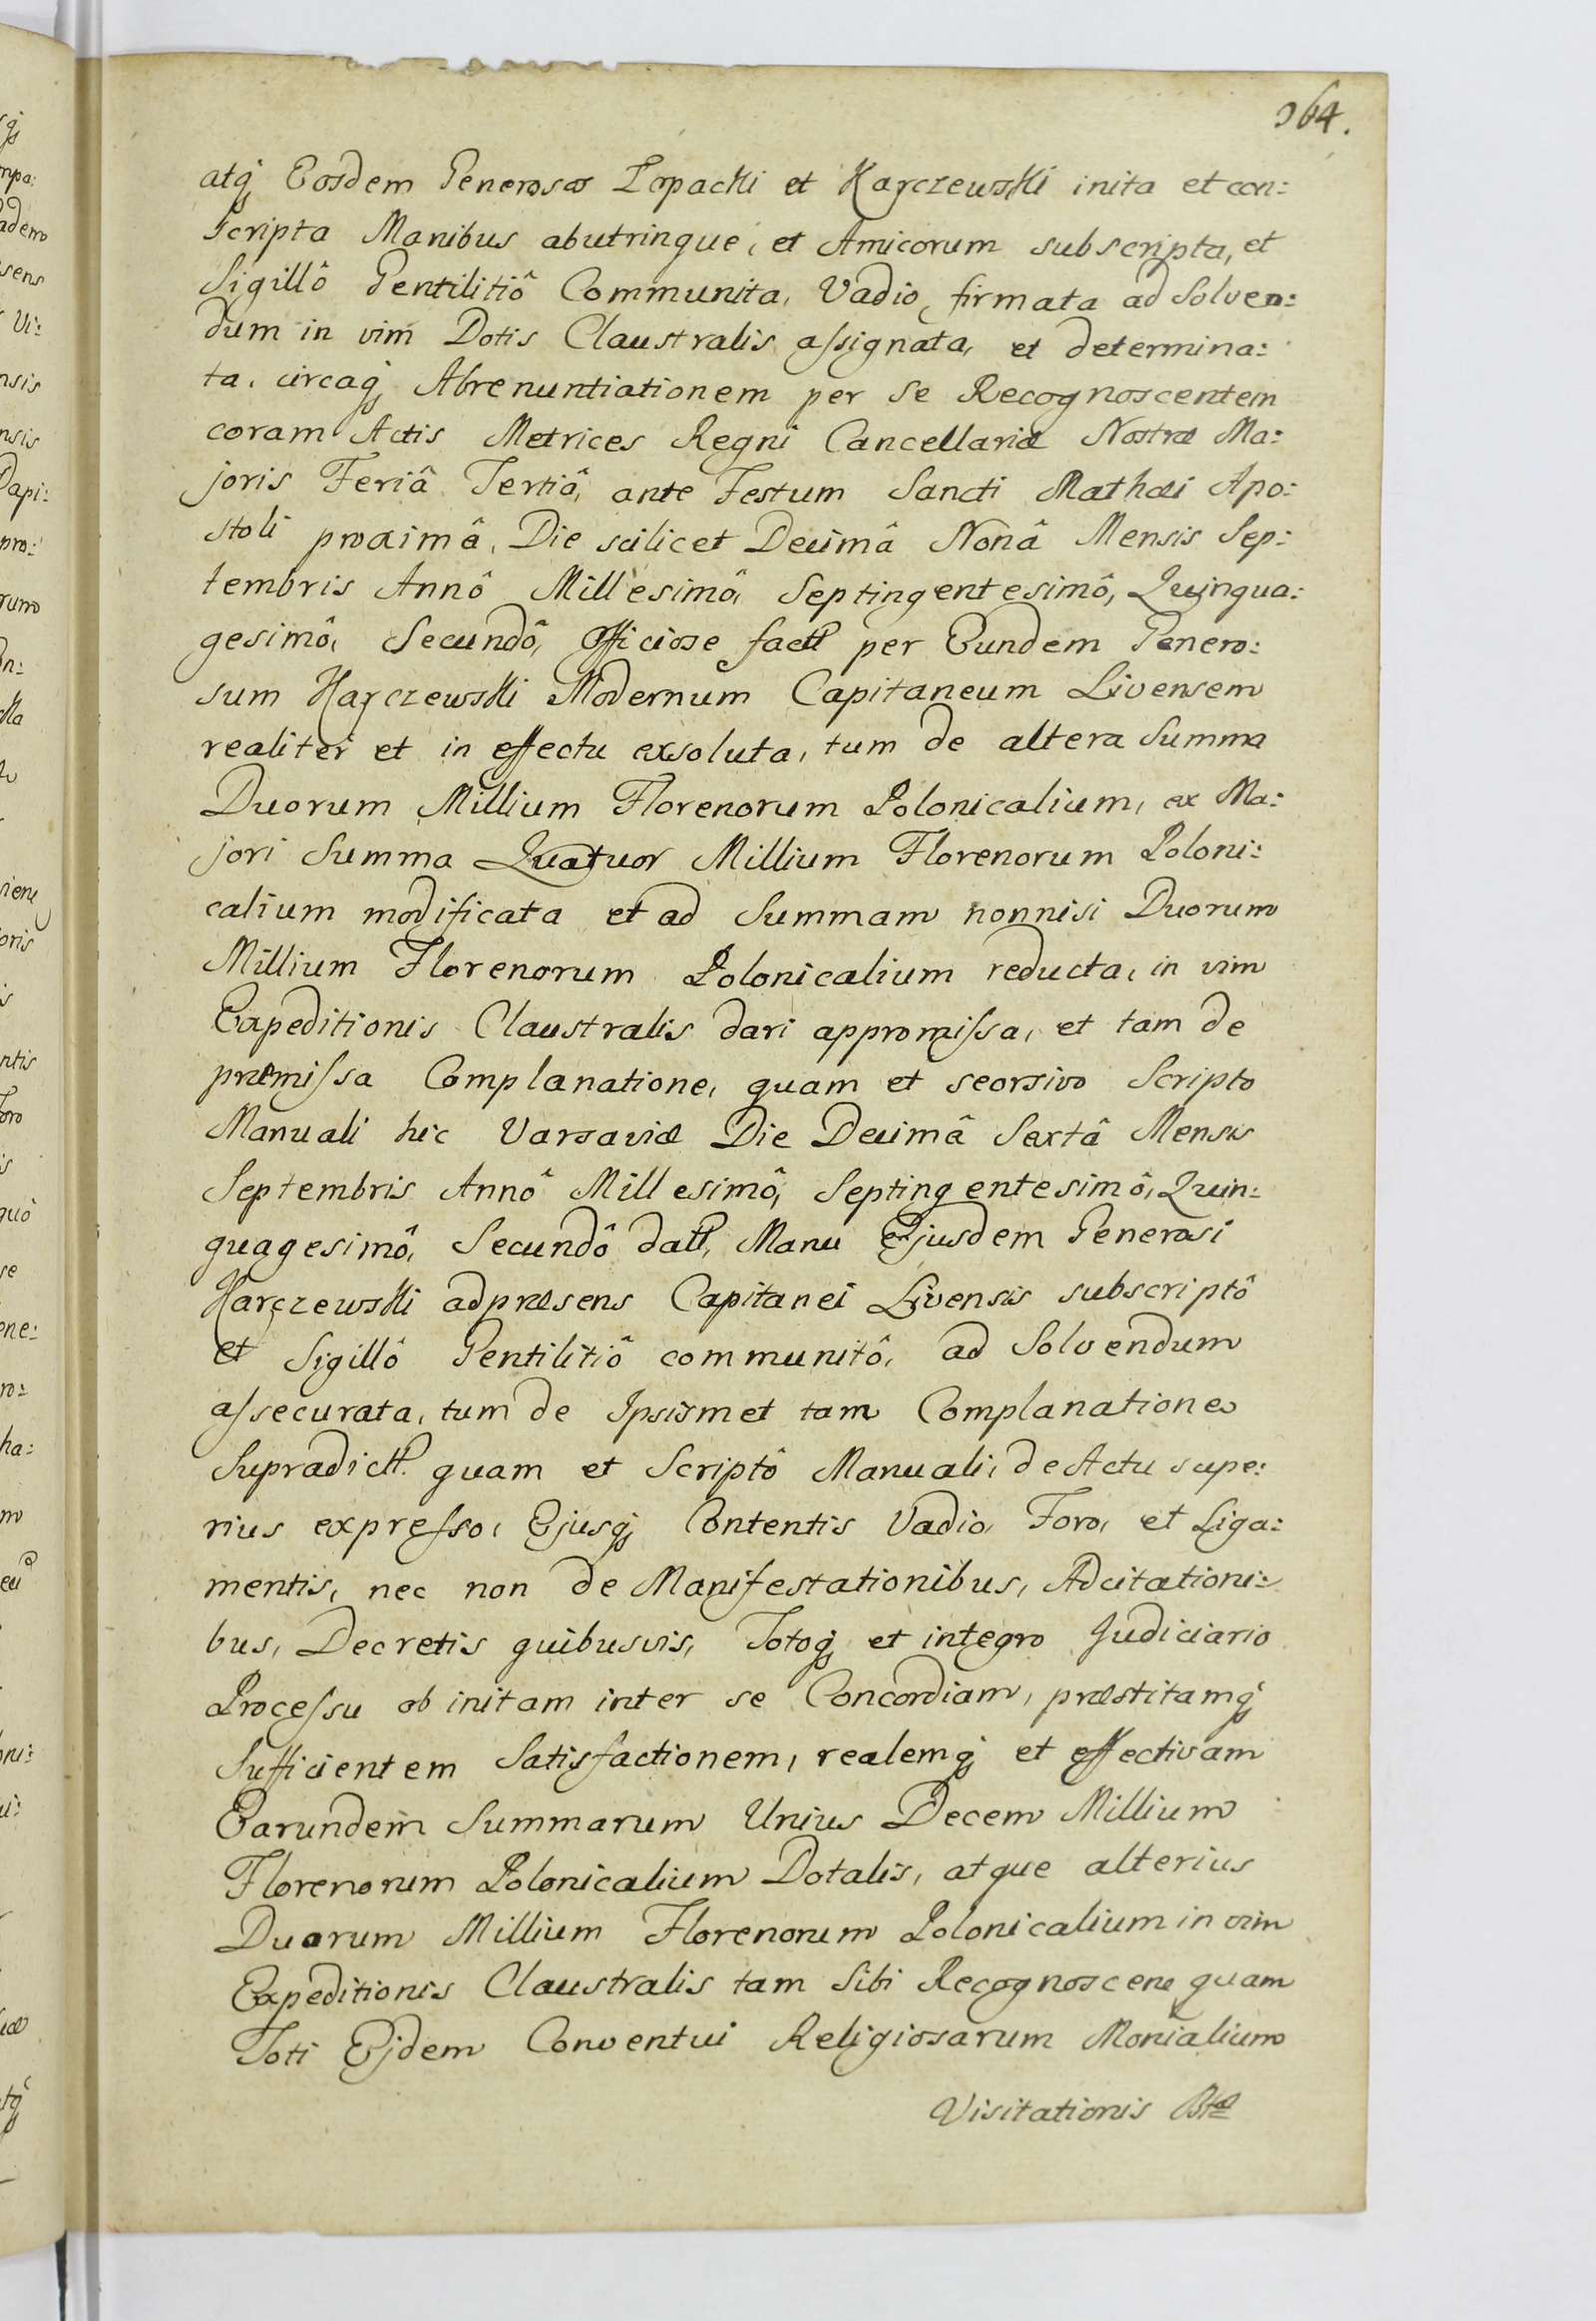 364.
atq Eosdem Generosos Łopacki et Karczewski inita et con:
scripta Manibus abutrinque, et Amicorum subscripta, et
Sigillô Gentilitiô Communita, Vadio, firmata ad Solven:
dum in vim Dotis Claustralis assignata, et determina:
ta, circaq Abrenuntiationem per se Recognoscentem
coram Actis Metrices Regni Cancellariæ Nostræ Ma:
joris Feriâ Tertiâ, ante Festum Sancti Mathæi Apo:
stoli proximâ, Die scilicet Decimâ Nonâ Mensis Sep:
tembris Annô Millesimô, Septingentesimô, Quinqua:
gesimô, Secundô, Officiose fact per Eundem Genero:
sum Karczewski Modernum Capitaneum Livensem
realiter et in effectu exsoluta, tum de altera Summa
Duorum Millium Florenorum Polonicalium, ex Ma:
jori Summa Quatuor Millium Florenorum Poloni:
calium modificata et ad Summam nonnisi Duorum
Millium Florenorum Polonicalium reducta, in vim
Expeditionis Claustralis dari appromissa, et tam de
præmissa Complanatione, quam et seorsivo Scripto
Manuali hic Varsaviæ Die Decimâ Sextâ Mensis
Septembris Annô Millesimô, Septingentesimô, Quin:
quagesimô, Secundô datt, Manu Ejusdem Generosi
Karczewski adpræsens Capitanei Livensis subscriptô
et Sigillô Gentilitiô communitô, ad Solvendum
assecurata, tum de Ipsismet tam Complanatione
Supradictt. quam et Scriptô Manuali, de Actu supe:
rius expresso, Ejusq Contentis Vadio, Foro, et Liga:
mentis, nec non de Manifestationibus, Adcitationi:
bus, Decretis quibusvis, Totoq et integro Judiciario
Processu ob initam inter se Concordiam, præstitamq
Sufficientem Satisfactionem, realemq et effectivam
Earundem Summarum Unius Decem Millium
Florenorum Polonicalium Dotalis, atque alterius
Duorum Millium Florenorum Polonicalium in vim
Expeditionis Claustralis tam Sibi Recognoscen quam
Toti Ejdem Conventui Religiosarum Monialium
Visitationis Btæ